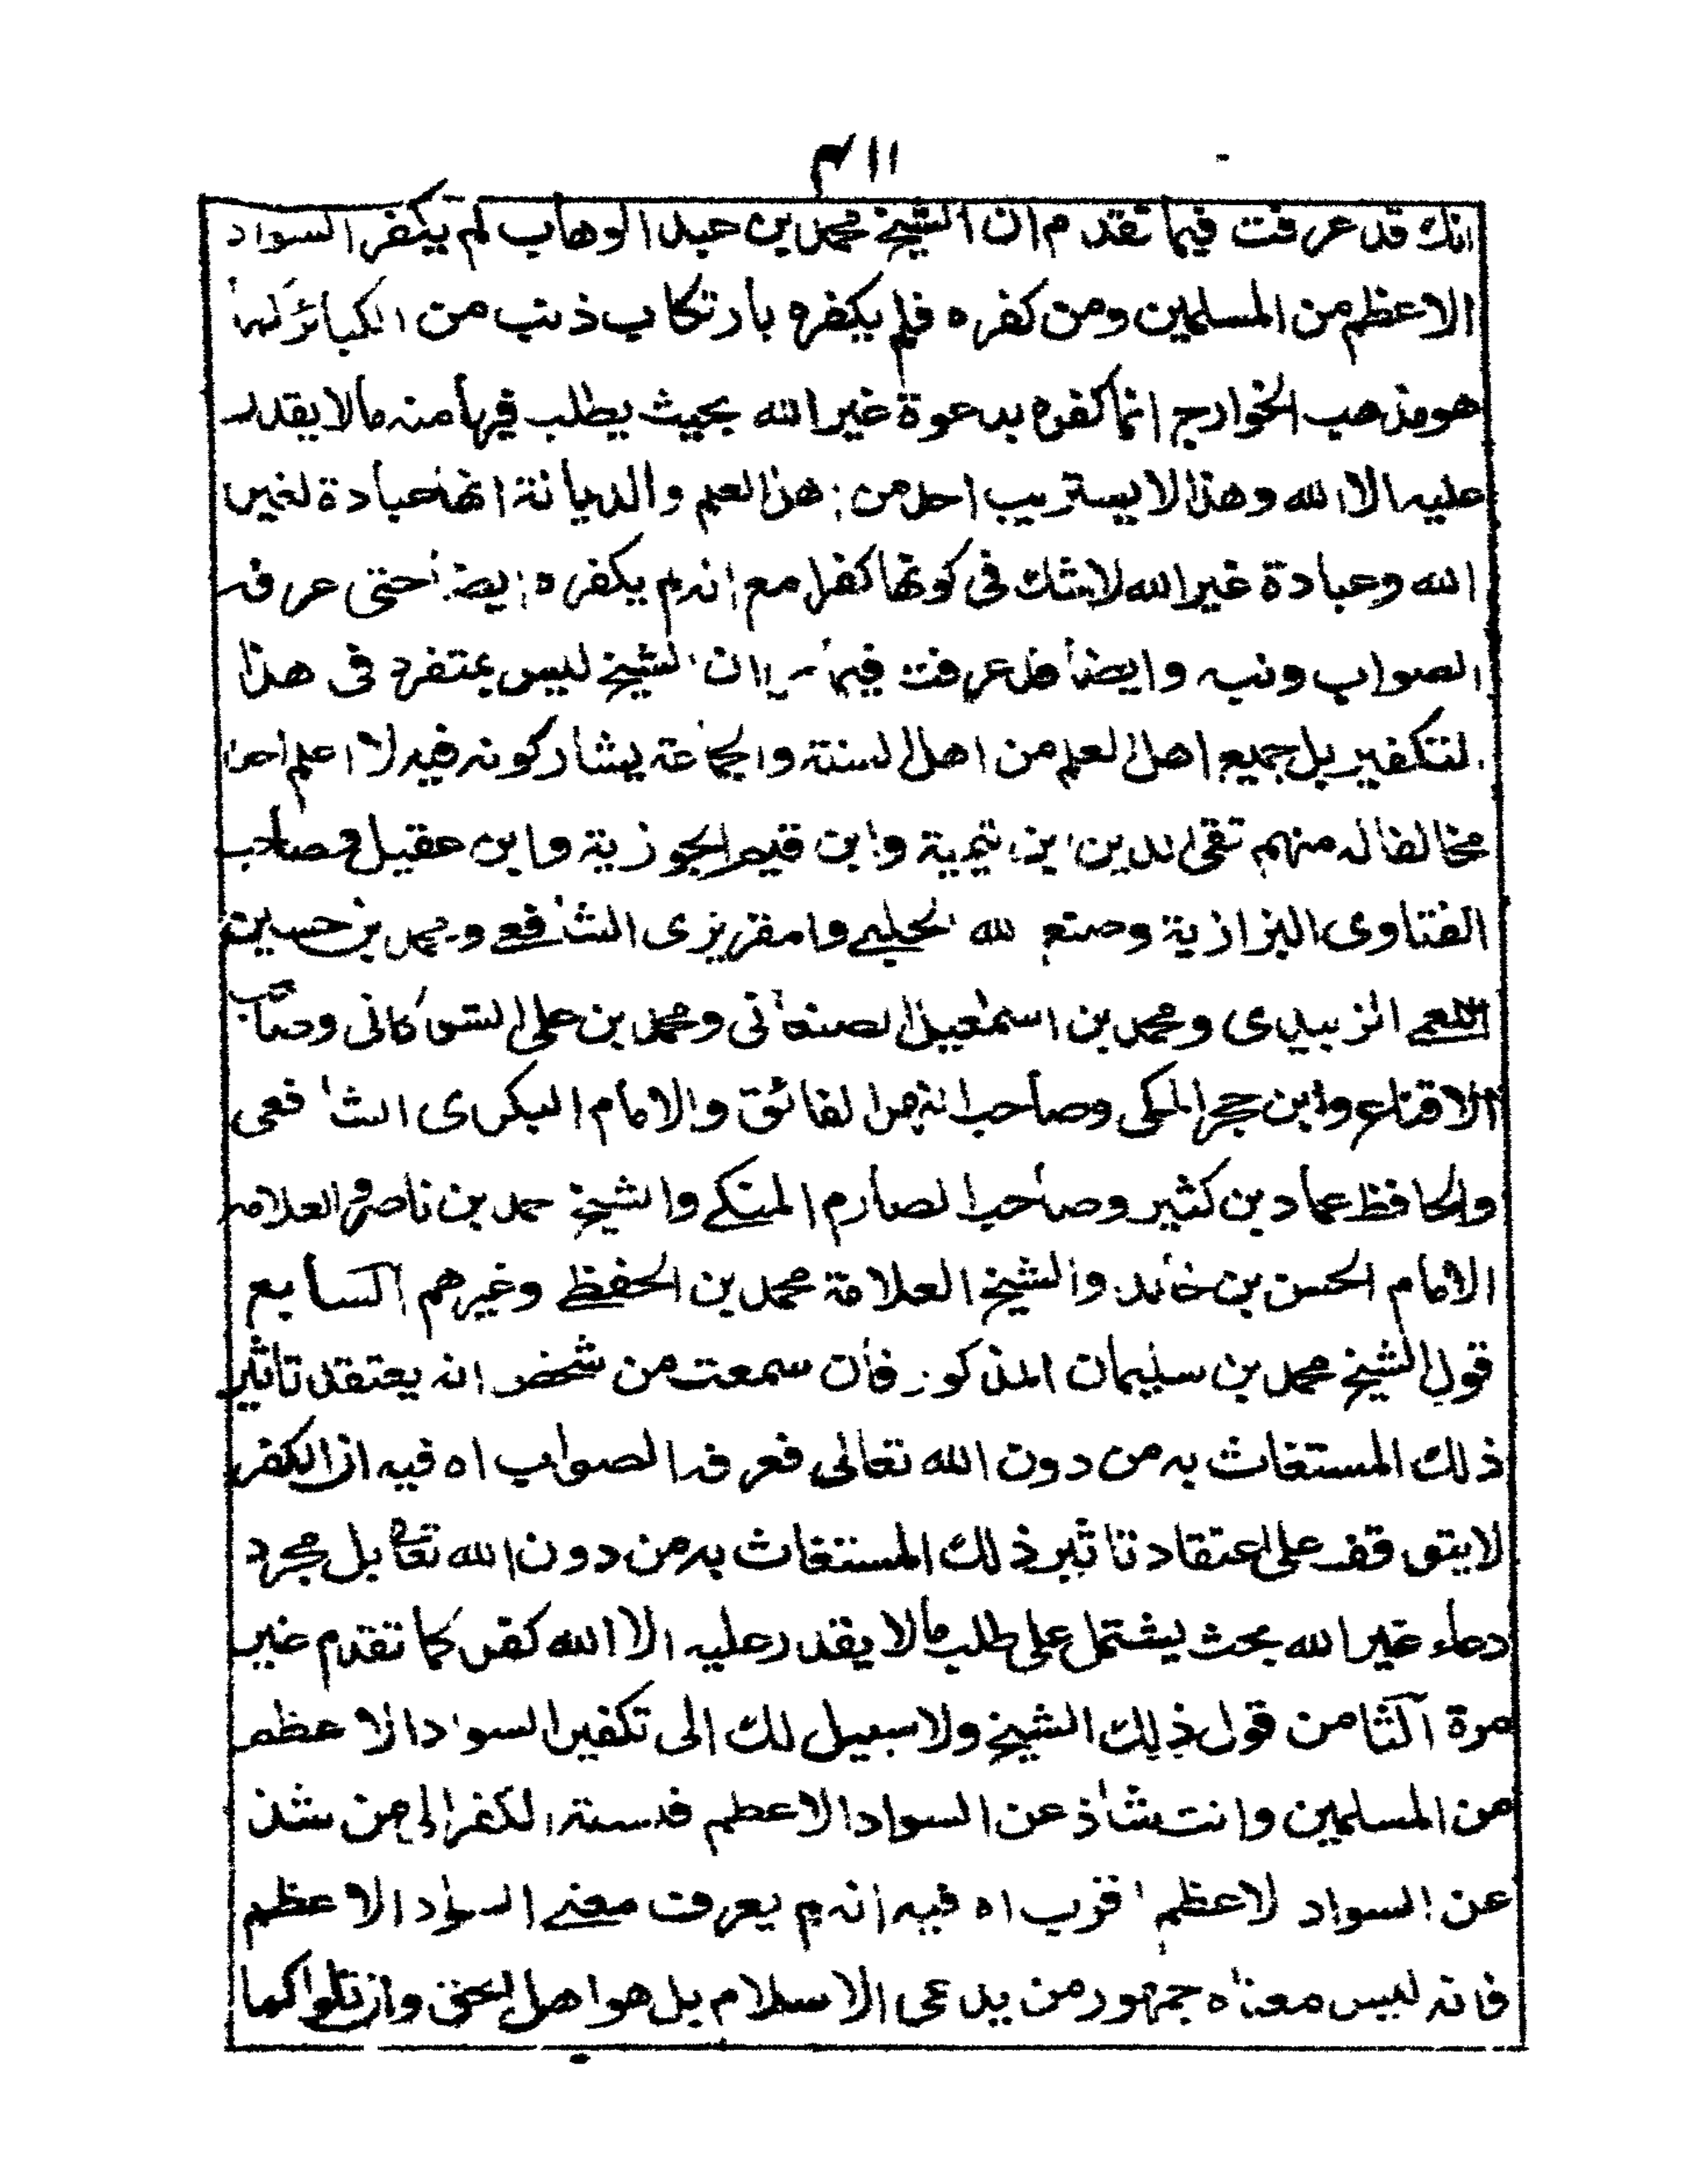 ٤١١
انك قد عرفت فيما تقدم ان الشيخ محمد بن عبد الوهاب لم يكفر السواد
الاعظم من المسلمين ومن كفره فلم يكفره بارتكاب ذنب من الكبائر كما
هو مذهب الخوارج انما كفره بدعوة غير الله بحيث يطلب فيها منه مالا يقدر
عليه الا الله وهذا لا يستريب احد من اهل العلم والديانة انها عبادة لغير
الله وعبادة غير الله لا شك فى كونها كفرا مع انه لم يكفره ايضا حتى عرفه
الصواب ونبه وايضا قد عرفت فيما مر ان الشيخ ليس بمتفرد فى هذا
التكفير بل جميع اهل العلم من اهل السنة والجماعة يشاركونه فيه لا اعلم احدا
مخالفا له منهم تقى الدين ابن تيمية وابن قيم الجوزية وابن عقيل وصاحب
الفتاوى البزازية وصنع الله الحلبي والمقريزى الشافعي ومحمد بن حسين
النعمي الزبيدى ومحمد بن اسمعيل الصنعانى ومحمد بن على الشوكانى وصاحب
الاقناع وابن حجر المكى وصاحب النهر الفائق والامام البكرى الشافعى
والحافظ عماد بن كثير وصاحب الصارم المنكي والشيخ حمد بن ناصر والعلامة
الامام الحسن بن خالد والشيخ العلامة محمد بن الحفظي وغيرهم السابع
قول الشيخ محمد بن سليمان المذكور فان سمعت من شخص انه يعتقد تاثير
ذلك المستغاث به من دون الله تعالى فعرفه الصواب اه فيه ان الكفر
لا يتوقف على اعتقاد تاثير ذلك المستغاث به من دون الله تعا بل مجرد
دعاء غير الله بحث يشتمل على طلب مالا يقدر عليه الا الله كفر كما تقدم غير
مرة الثامن قول ذلك الشيخ ولا سبيل لك الى تكفير السواد الاعظم
من المسلمين وانت شاذ عن السواد الاعظم فنسبة الكفر الى من شذ
عن السواد الاعظم اقرب اه فيه انه لم يعرف معنى السواد الاعظم
فانه ليس معناه جمهور من يدعى الاسلام بل هو اهل الحق وان قلوا كما